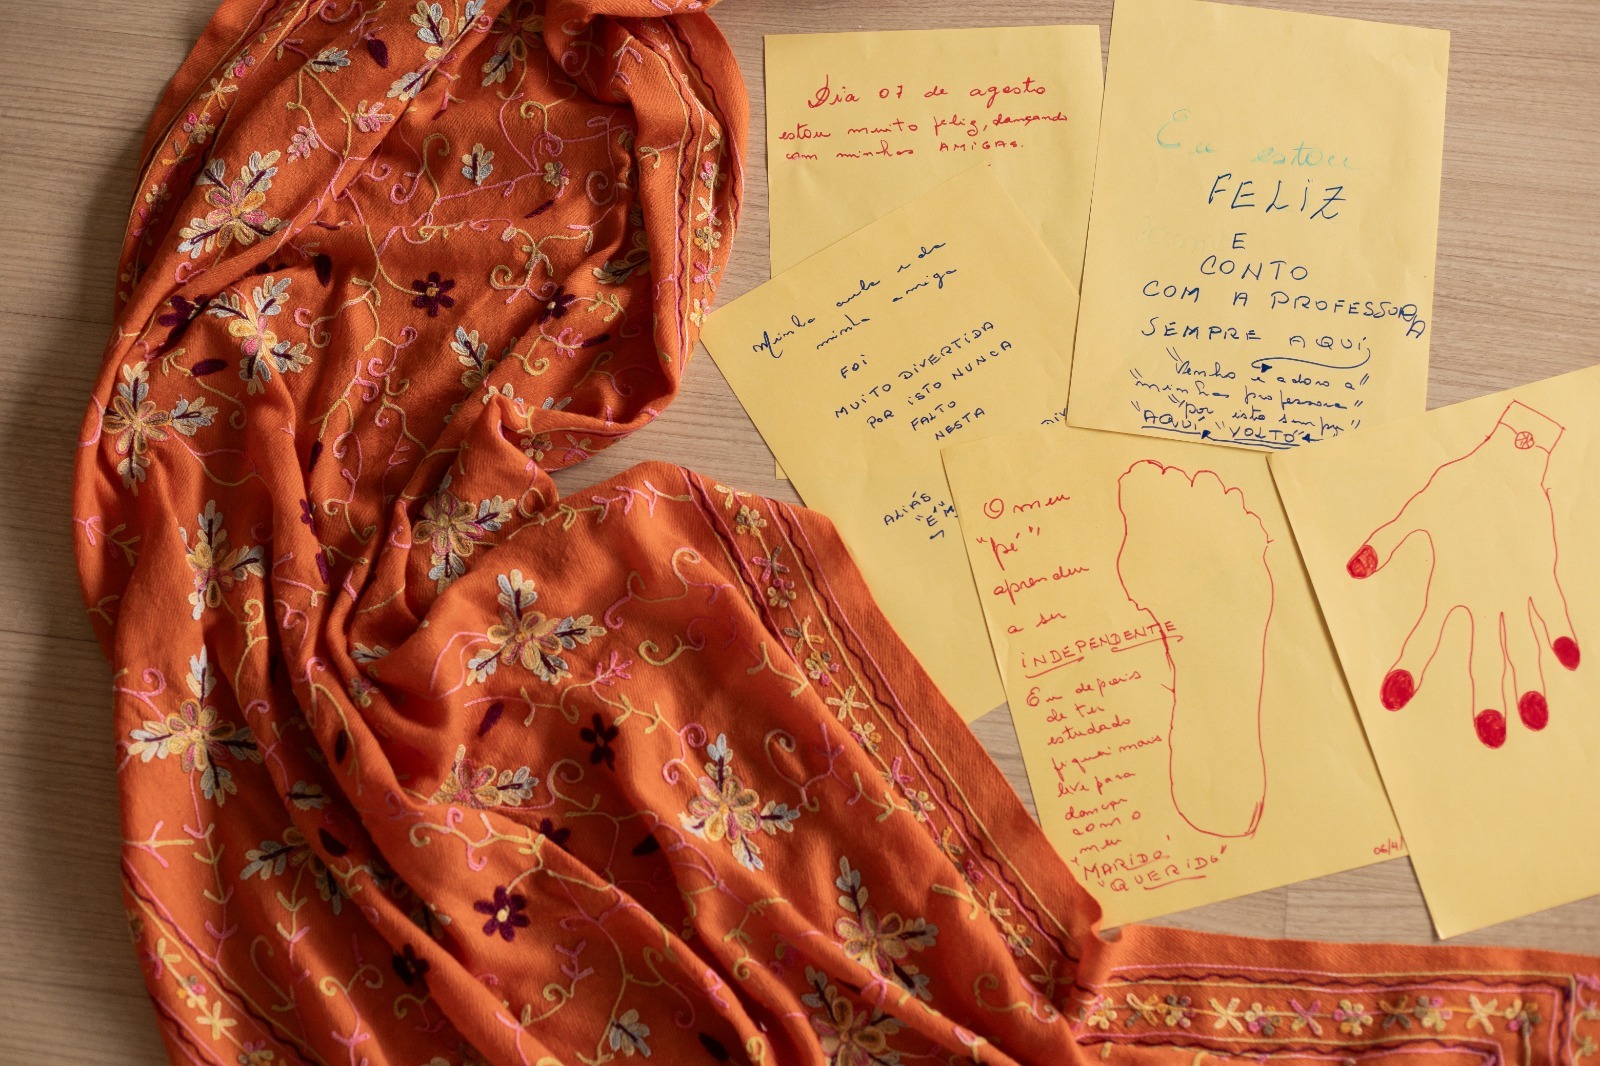 Dia 07 de agosto
estou muito feliz, dançando
com minhas AMIGAS.
Minha aula e da
minha amiga
FOI
MUITO DIVERTIDA
POR ISTO NUNCA
FALTO
NESTA
ALIÁS
Eu estou
FELIZ
E
CONTO
COM A PROFESSORA
SEMPRE AQUI,
"Venho e adoro a"
"minhas professora"
"por isto sempre"
"AQUI" "VOLTO"
O meu
"pé"
aprendeu
a ser
INDEPENDENTE
Eu depois
de ter
estudado
fiquei mais
live para
dançar
com o
meu
"MARIDO"
"QUERIDO"
06/4/